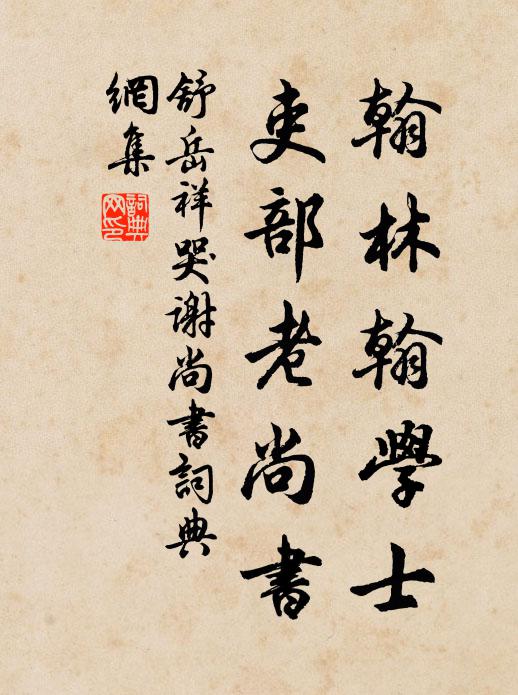 翰林翰學士
吏部老尚書
舒岳祥哭谢尚書詞典
網集
詞典
网印